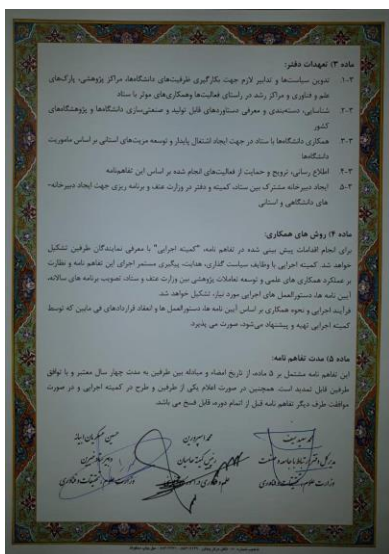 ماده ۳) تعهدات دفتر:
۳-۱. تدوین سیاست‌ها و تدابیر لازم جهت بکارگیری ظرفیت‌های دانشگاه‌ها، مراکز پژوهشی، پارک‌های
علم و فناوری و مراکز رشد در راستای فعالیت‌ها و همکاری‌های موثر با ستاد
۳-۲. شناسایی، دسته‌بندی و معرفی دستاوردهای قابل تولید و صنعتی‌سازی دانشگاه‌ها و پژوهشگاه‌های
کشور
۳-۳. همکاری دانشگاه‌ها با ستاد در جهت ایجاد اشتغال پایدار و توسعه مزیت‌های استانی بر اساس ماموریت
دانشگاه‌ها
۳-۴. اطلاع رسانی، ترویج و حمایت از فعالیت‌های انجام شده بر اساس این تفاهم‌نامه
۳-۵. ایجاد دبیرخانه مشترک بین ستاد، کمیته و دفتر در وزارت عتف و برنامه ریزی جهت ایجاد دبیرخانه-
های دانشگاهی و استانی
ماده ۴) روش های همکاری:
برای انجام اقدامات پیش بینی شده در تفاهم نامه، "کمیته اجرایی" با معرفی نمایندگان طرفین تشکیل
خواهد شد. کمیته اجرایی با وظایف سیاست گذاری، هدایت، پیگیری مستمر اجرای این تفاهم نامه و نظارت
بر عملکرد همکاری های علمی و توسعه تعاملات پژوهشی بین وزارت عتف و ستاد، تصویب برنامه های سالانه،
آیین نامه ها، دستورالعمل های اجرایی مورد نیاز، تشکیل خواهد شد.
فرآیند اجرایی و نحوه همکاری بر اساس آیین نامه ها، دستورالعمل ها و انعقاد قراردادهای فی مابین که توسط
کمیته اجرایی تهیه و پیشنهاد می‌شود، صورت می پذیرد.
ماده ۵) مدت تفاهم نامه:
این تفاهم نامه مشتمل بر ۵ ماده، از تاریخ امضاء و مبادله بین طرفین به مدت چهار سال معتبر و با توافق
طرفین قابل تمدید است. همچنین در صورت اعلام یکی از طرفین و طرح در کمیته اجرایی و در صورت
موافقت طرف دیگر تفاهم نامه قبل از اتمام دوره، قابل فسخ می باشد.
محمد سعید سیف
مدیرکل دفتر ارتباط با جامعه و صنعت
وزارت علوم، تحقیقات و فناوری